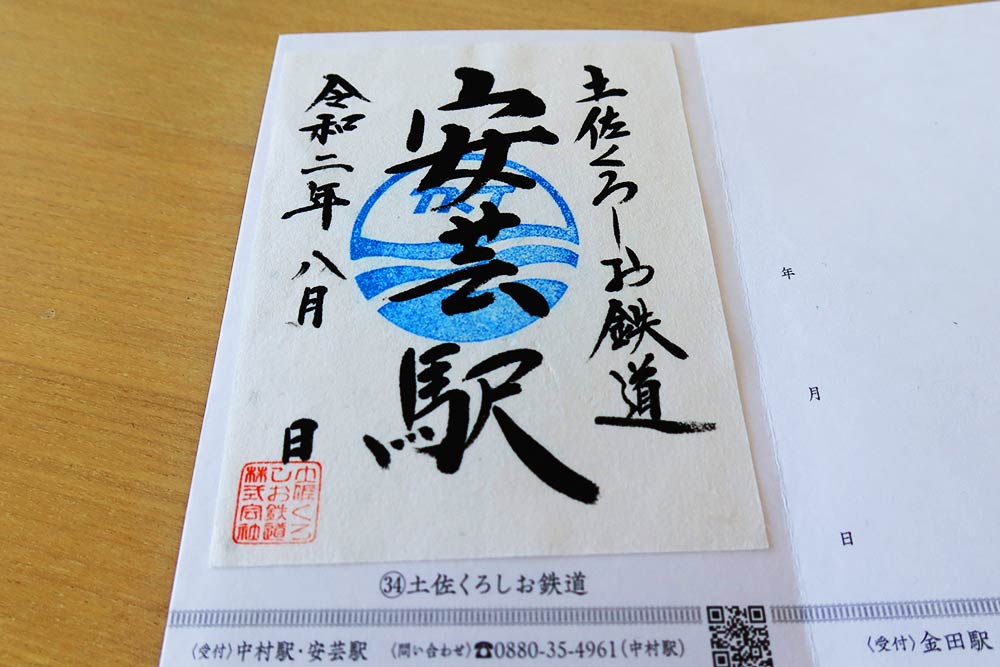 土佐くろしお鉄道
安芸駅
令和二年 八月 日
TKT
土佐くろ
しお鉄道
株式会社
㉞土佐くろしお鉄道
〈受付〉中村駅・安芸駅 〈問い合わせ〉☎0880-35-4961(中村駅)
年
月
日
〈受付〉金田駅